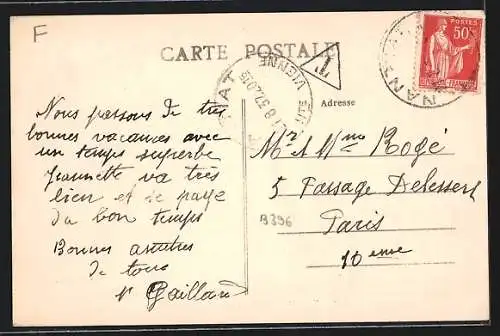 F
CARTE POSTALE
POSTES
50c
T
VIENNE
NANT
Adresse
Nous passons de très
bonnes vacances avec
un temps superbe
Jeannette va très
bien et se paye
du bon temps
Bonnes amitiés
de tous
Gaillard
Mr et Mme Rogé
5 Passage Delessert
B396
Paris
10 eme